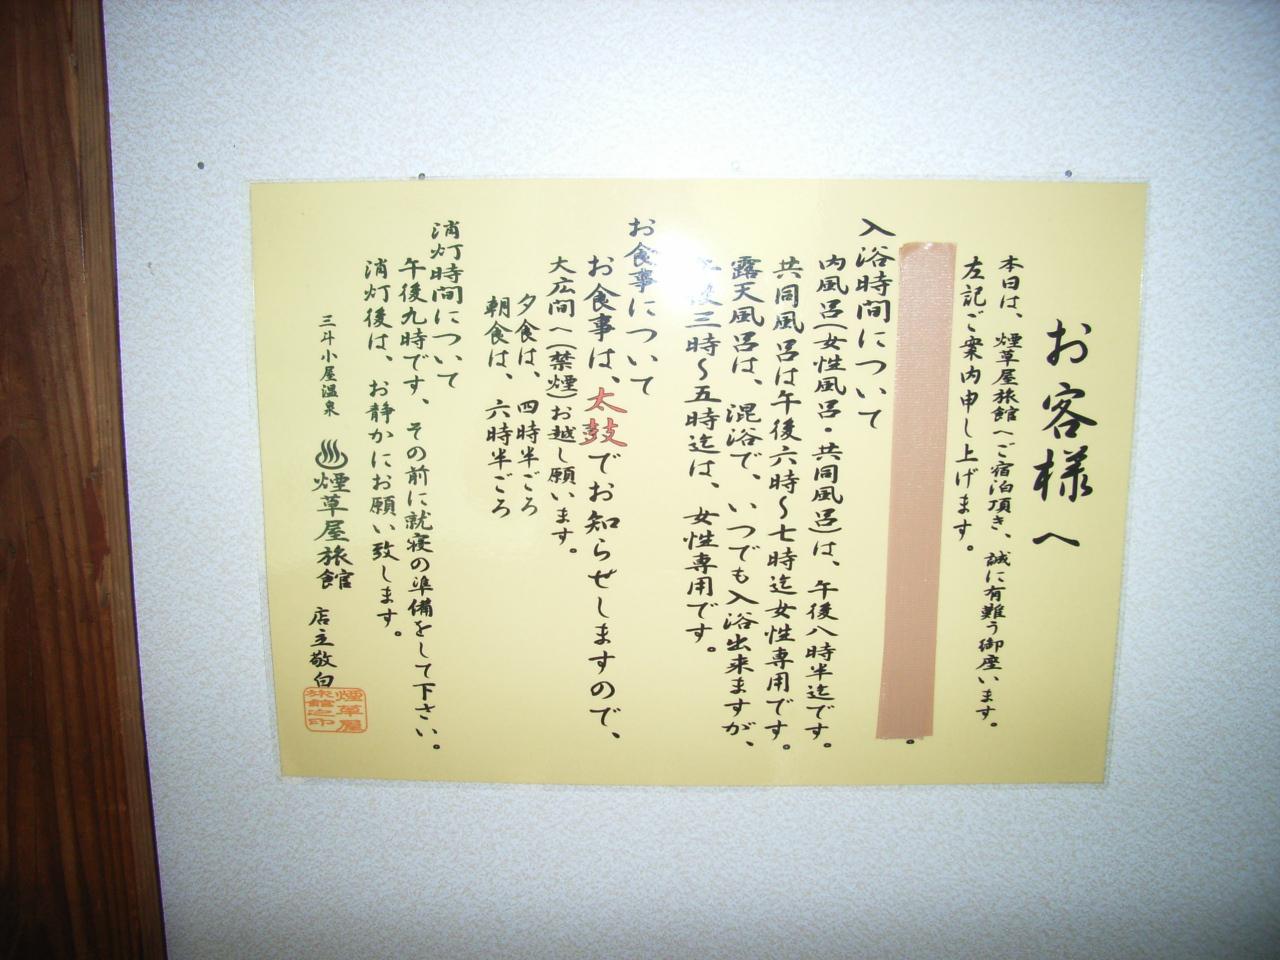 お客様へ
本日は、煙草屋旅館へご宿泊頂き、誠に有難う御座います。
左記ご案内申し上げます。
。
入浴時間について
内風呂(女性風呂・共同風呂)は、午後八時半迄です。
共同風呂は午後六時～七時迄女性専用です。
露天風呂は、混浴で、いつでも入浴出来ますが、
午後三時～五時迄は、女性専用です。
お食事について
お食事は、太鼓でお知らせしますので、
大広間へ(禁煙)お越し願います。
夕食は、四時半ごろ
朝食は、六時半ごろ
消灯時間について
午後九時です、その前に就寝の準備をして下さい。
消灯後は、お静かにお願い致します。
三斗小屋温泉 ♨煙草屋旅館 店主敬白
煙草屋
旅館之印